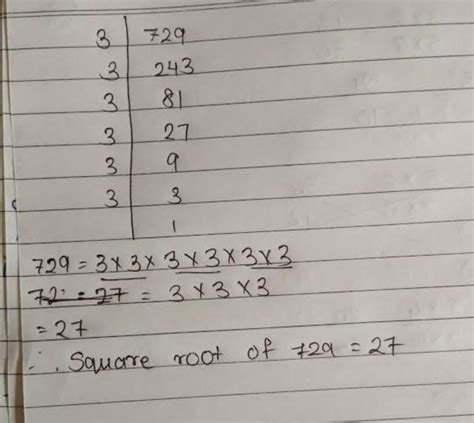 3 | 729
3 | 243
3 | 81
3 | 27
3 | 9
3 | 3
| 1
729 = 3 × 3 × 3 × 3 × 3 × 3
72 = 27 = 3 × 3 × 3
= 27
∴ Square root of 729 = 27